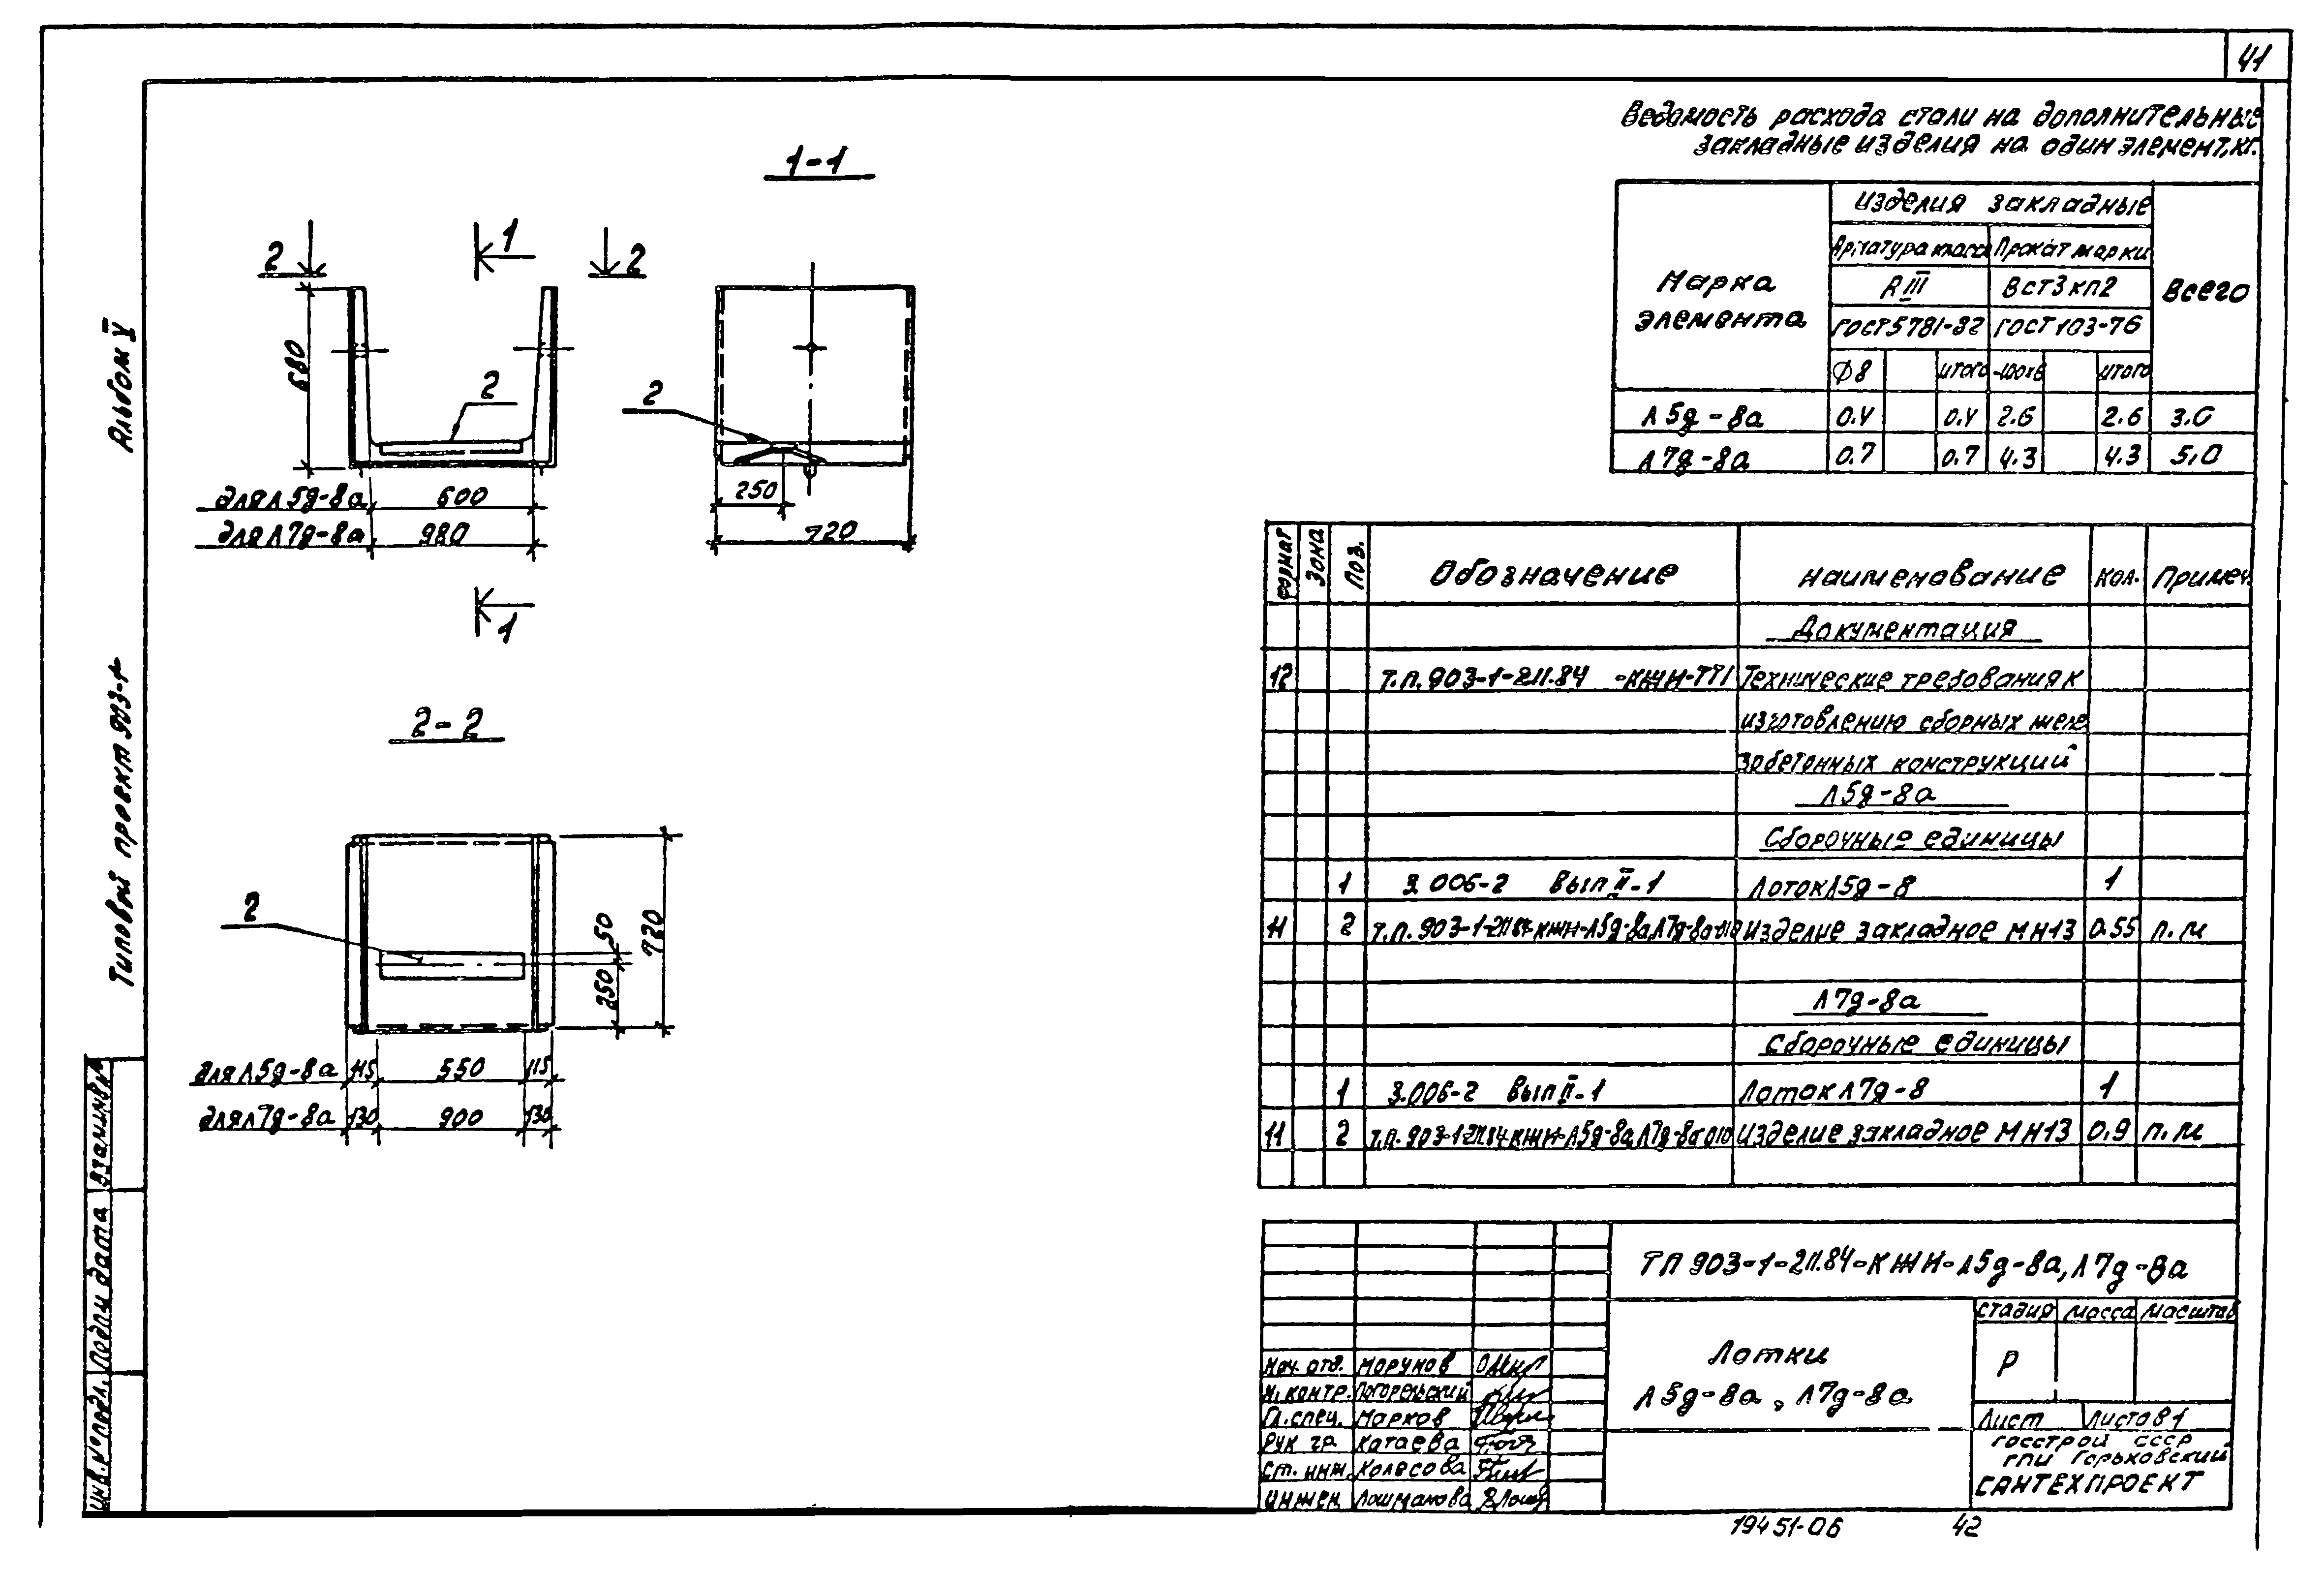 41
Ведомость расхода стали на дополнительные
закладные изделия на один элемент, кг.
Марка элемента
Изделия закладные
Всего
Арматура класса
Прокат марки
АIII
ВСт3кп2
ГОСТ 5781-82
ГОСТ 103-76
Ф8
итого
-100х6
итого
Л5g-8а 0.4 0.4 2.6 2.6 3.0
Л7g-8а 0.7 0.7 4.3 4.3 5.0
1-1
2
1
2
680
2
для Л5g-8а 600
для Л7g-8а 980
1
2
250
720
2-2
2
50
250
720
для Л5g-8а 115 550 115
для Л7g-8а 130 900 130
Альбом V
Типовой проект 903-1-
Взам.инв.№
Подп. и дата
Инв.№ подл.
Формат Зона Поз. Обозначение Наименование Кол. Примеч.
Документация
12 Т.П.903-1-211.84 -КЖИ-ТТ1 Технические требования к
изготовлению сборных желе
зобетонных конструкций
Л5g-8а
Сборочные единицы
1 3.006-2 Вып II-1 Лоток Л5g-8 1
11 2 Т.П.903-1-211.84-КЖИ-Л5g-8а,Л7g-8а-010 Изделие закладное МН13 0.55 п.м
Л7g-8а
Сборочные единицы
1 3.006-2 Вып II-1 Лоток Л7g-8 1
11 2 Т.П.903-1-211.84 КЖИ-Л5g-8а,Л7g-8а-010 Изделие закладное МН13 0.9 п.м
ТП 903-1-211.84-КЖИ-Л5g-8а,Л7g-8а
Лотки
Л5g-8а, Л7g-8а
Стадия Масса Масштаб
Р
Лист Листов 1
Госстрой СССР
ГПИ Горьковский
САНТЕХПРОЕКТ
Нач. отд. Морунов
Н.контр. Погорельский
Гл.спец. Марков
Рук гр. Катаева
Ст. инж. Колесова
Инжен. Лошманова
19451-06 42